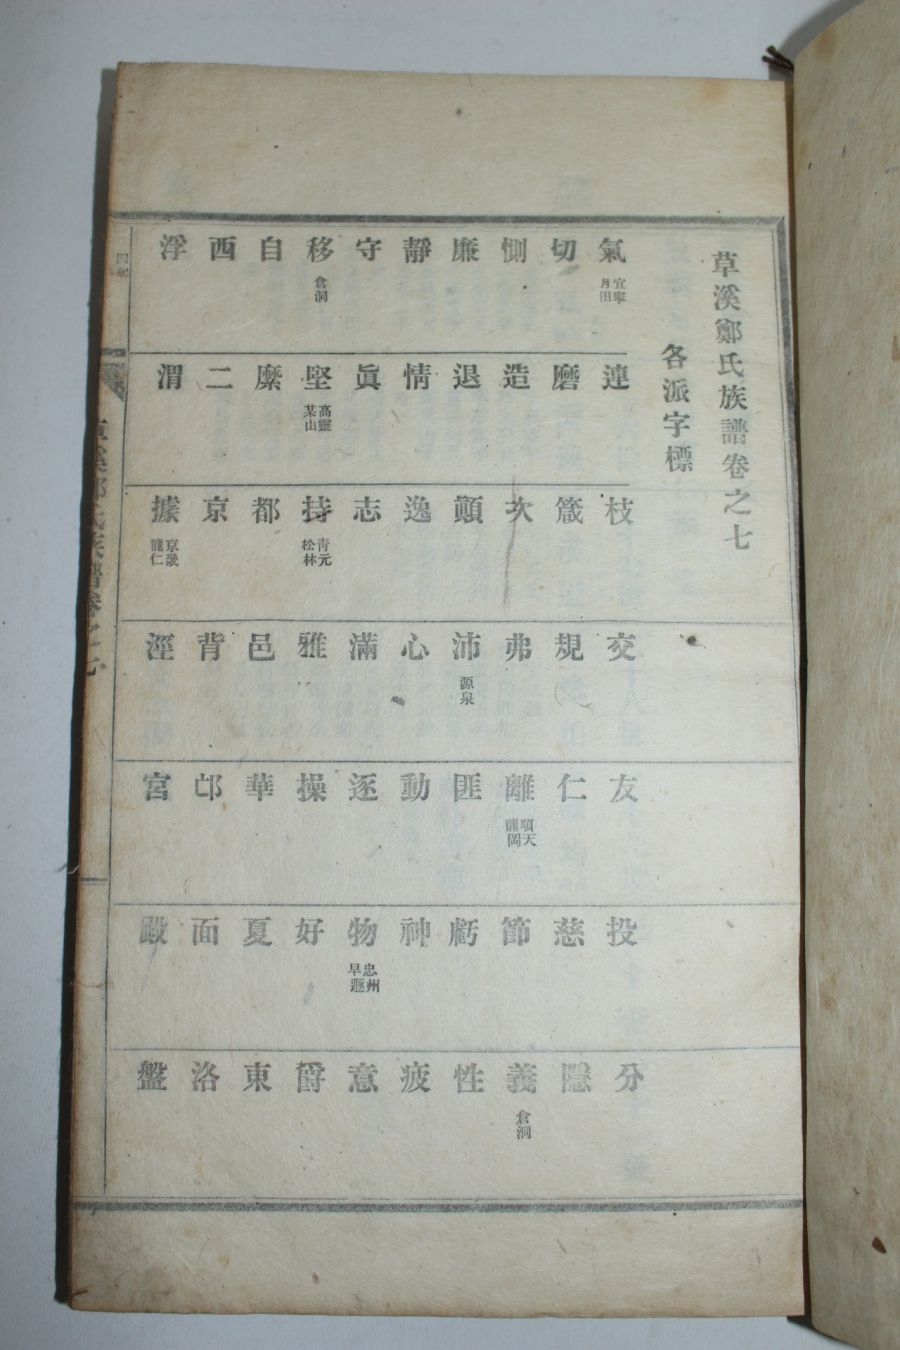 草溪鄭氏族譜卷之七
各派字標
氣 宜寧 月田 連 枝 交 友 投 分
切 磨 箴 規 仁 慈 隱
惻 造 次 弗 離 順天 龍岡 節 義 倉洞
廉 退 顚 沛 源泉 匪 虧 性
靜 情 逸 心 動 神 疲
守 眞 志 滿 逐 物 忠州 意
移 倉洞 堅 高靈 某山 持 靑元 松林 雅 操 好 爵
自 縻 都 邑 華 夏 東
西 二 京 背 邙 面 洛
浮 渭 據 京畿 龍仁 涇 宮 殿 盤
草溪鄭氏族譜卷之七